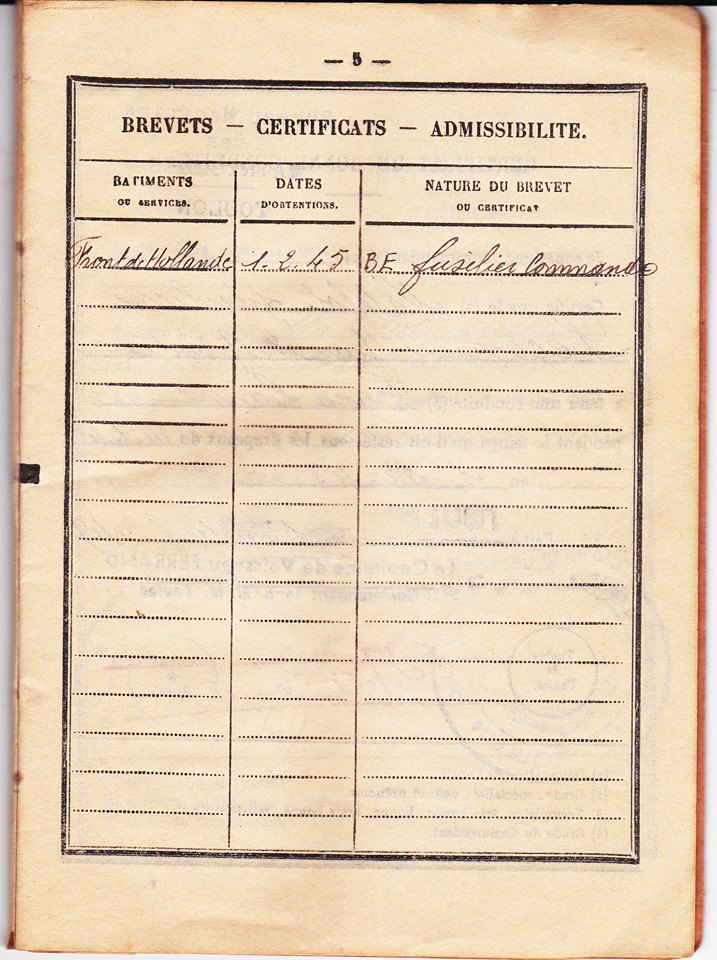 — 5 —
BREVETS — CERTIFICATS — ADMISSIBILITE.
BATIMENTS
OU SERVICES.
DATES
D'OBTENTIONS.
NATURE DU BREVET
OU CERTIFICAT
Front de Hollande 1. 2. 45 B.E. fusilier Commando